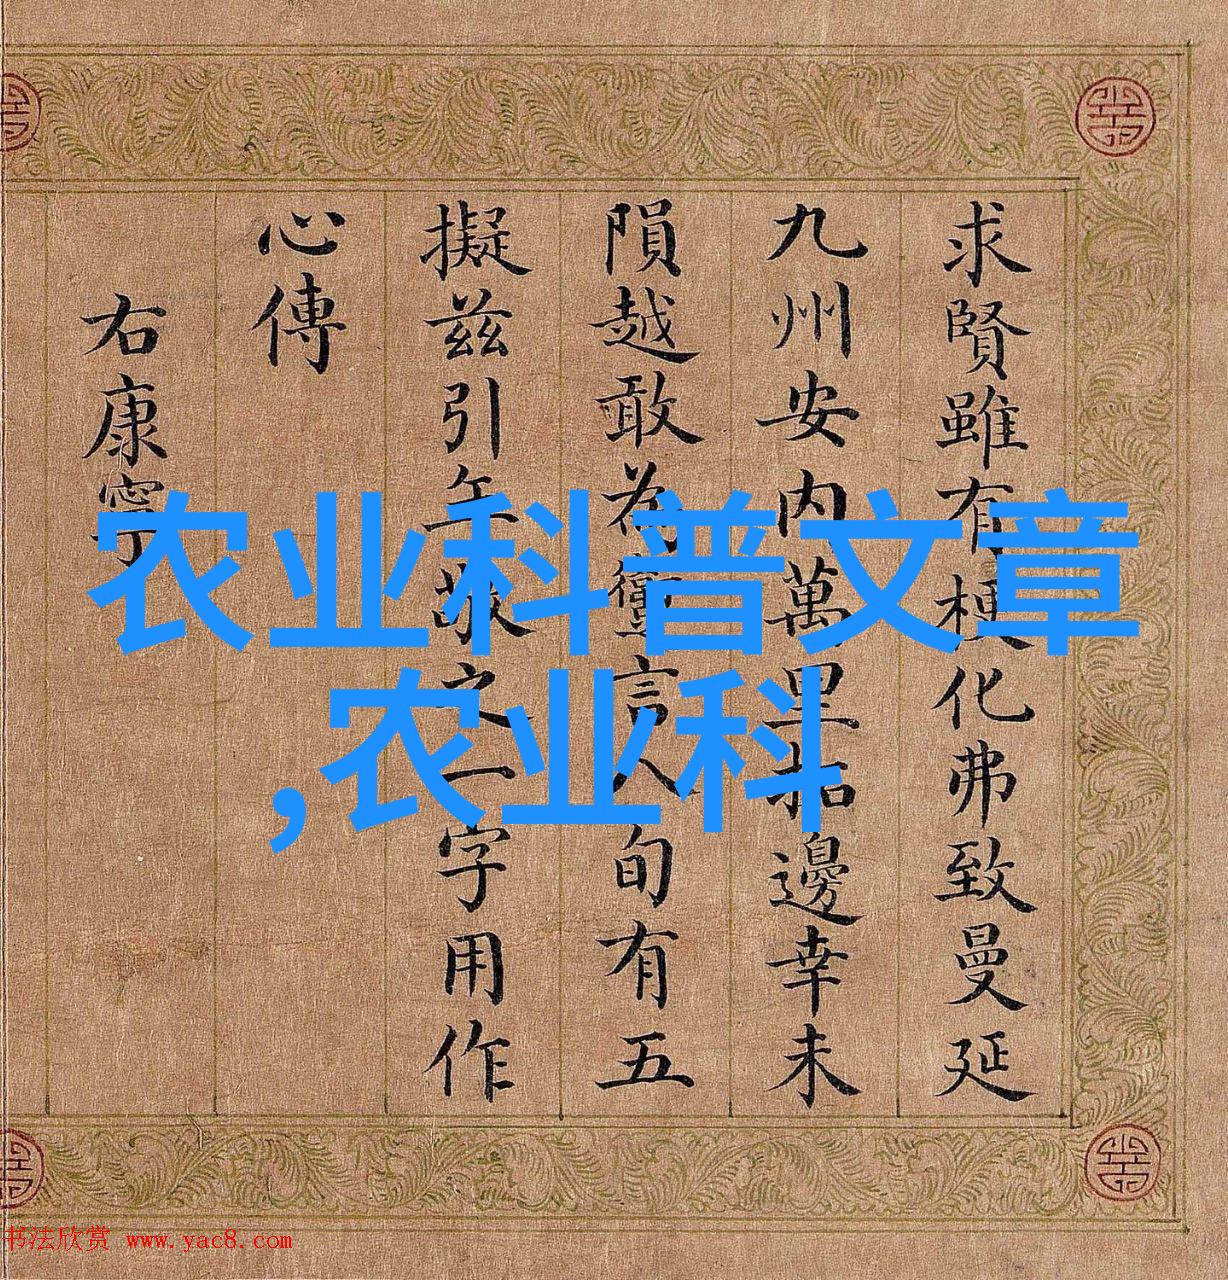 求賢雖有梗化弗致曼延
九州安内萬里拓邊幸未
隕越敢為讜言人旬有五
擬兹引年敬之一字用作
心傳
右康寧
农业科普文章
,农业科
书法欣赏 www.yac8.com